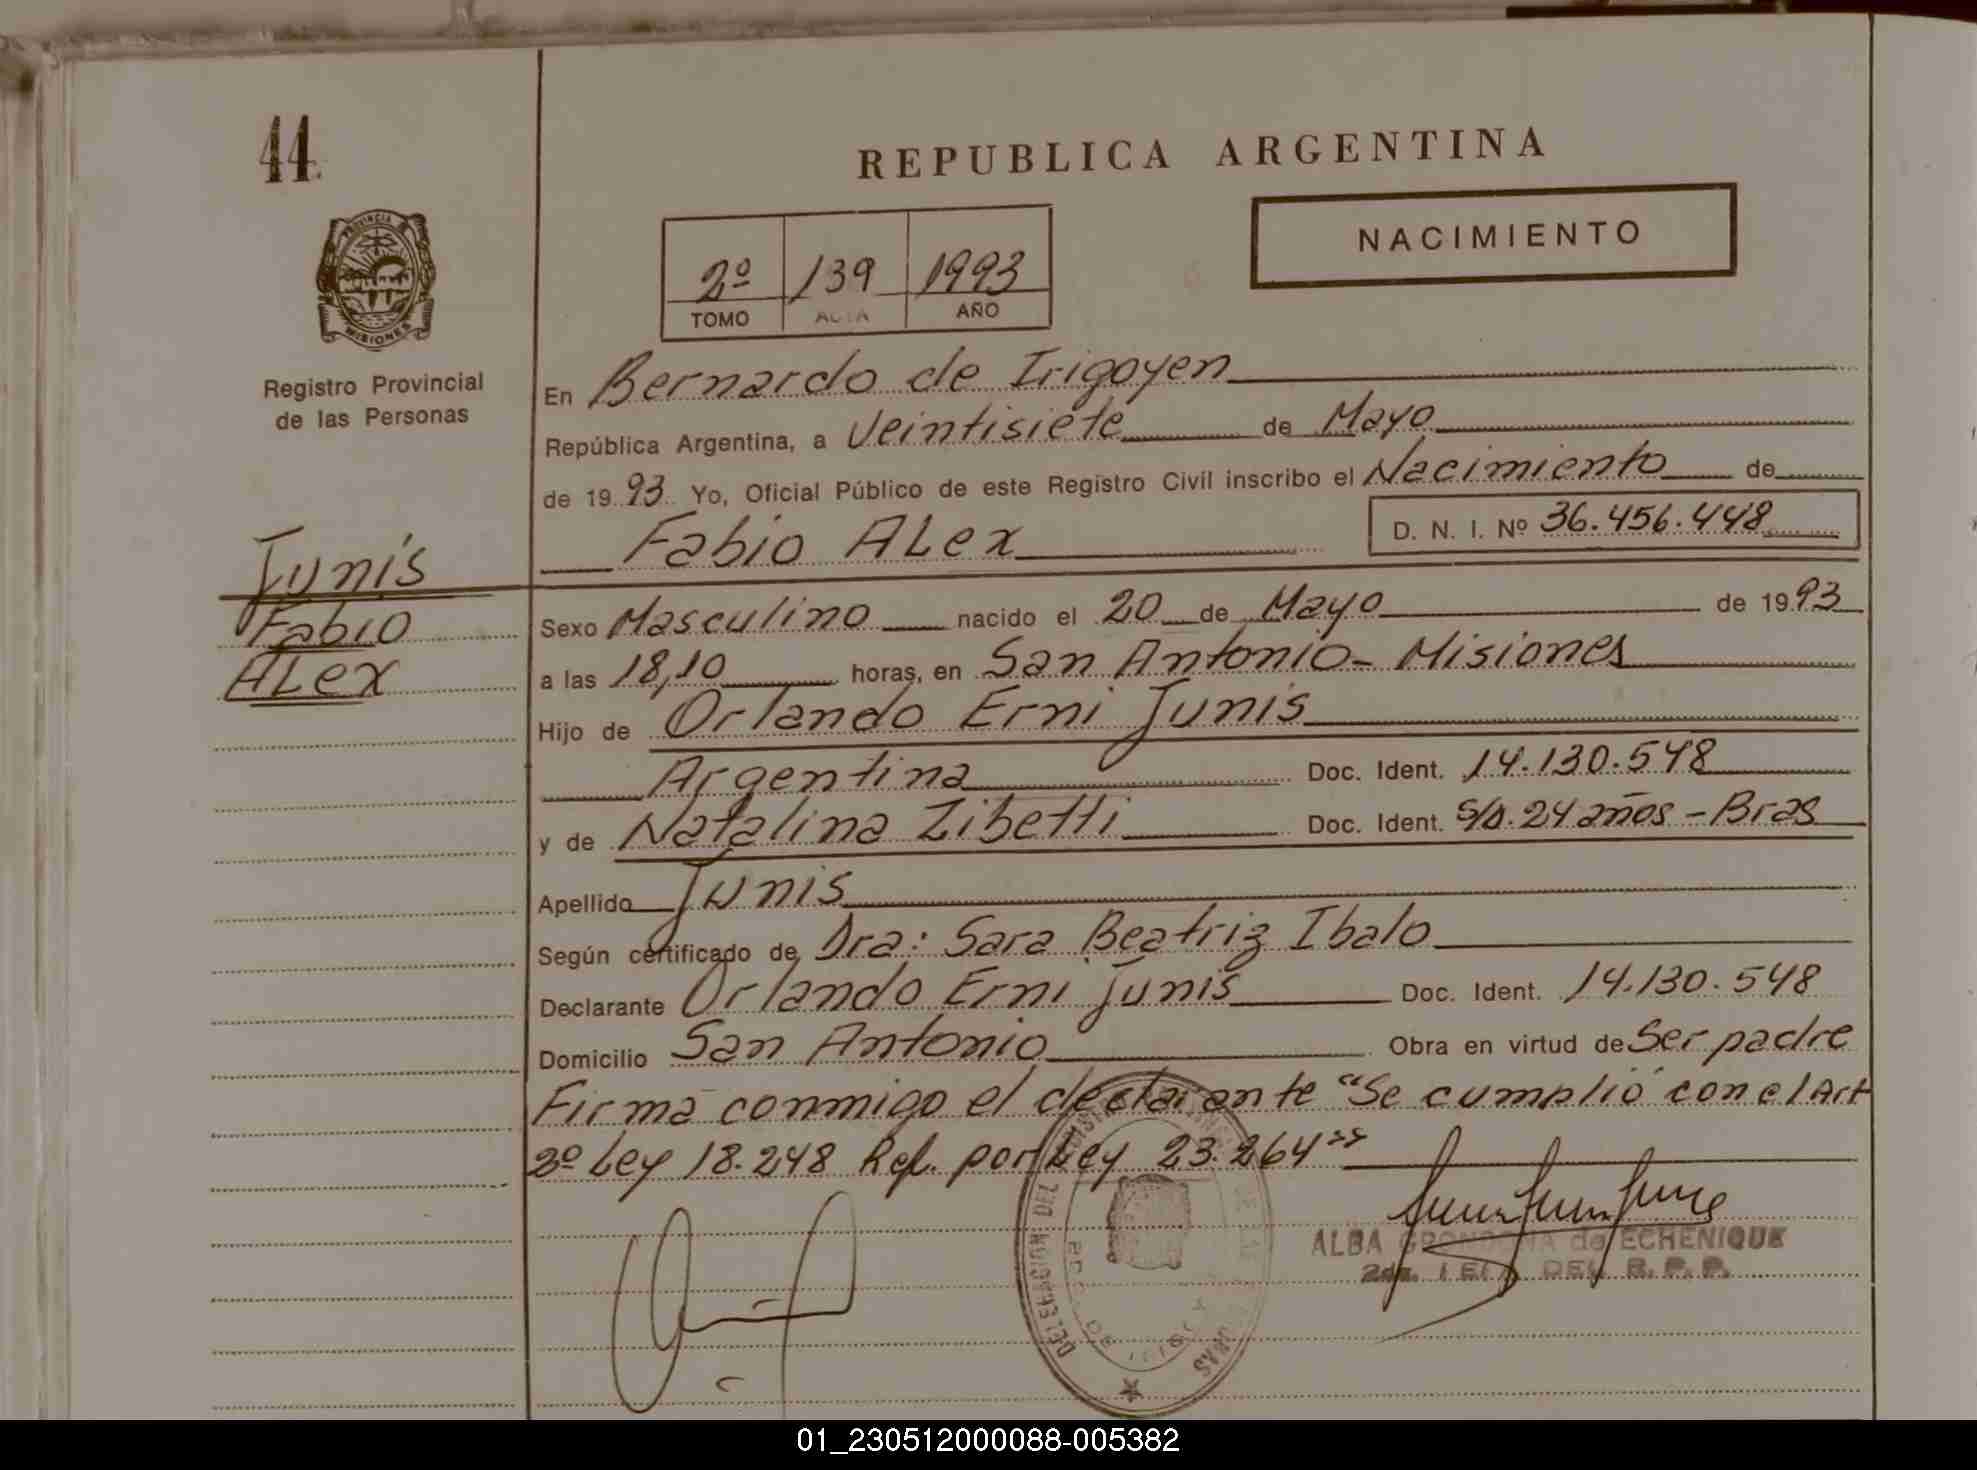 44
REPUBLICA ARGENTINA
NACIMIENTO
PROVINCIA DE
MISIONES
Registro Provincial
de las Personas
2º 139 1993
TOMO ACTA AÑO
En Bernardo de Irigoyen
República Argentina, a Veintisiete de Mayo
de 1993 Yo, Oficial Público de este Registro Civil inscribo el Nacimiento de
Fabio Alex D. N. I. Nº 36.456.448
Junis
Fabio
Alex
Sexo Masculino nacido el 20 de Mayo de 1993
a las 18,10 horas, en San Antonio - Misiones
Hijo de Orlando Erni Junis
Argentina Doc. Ident. 14.130.548
y de Natalina Zibetti Doc. Ident. S/D. 24 años - Bras
Apellido Junis
Según certificado de Dra: Sara Beatriz Ibalo
Declarante Orlando Erni Junis Doc. Ident. 14.130.548
Domicilio San Antonio Obra en virtud de Ser padre
Firma conmigo el declarante "Se cumplió con el Art
2º Ley 18.248 Ref. por Ley 23.264"
ALBA GRONDONA de ECHENIQUE
DEL R. P. P.
DELEGACION DEL
01_230512000088-005382